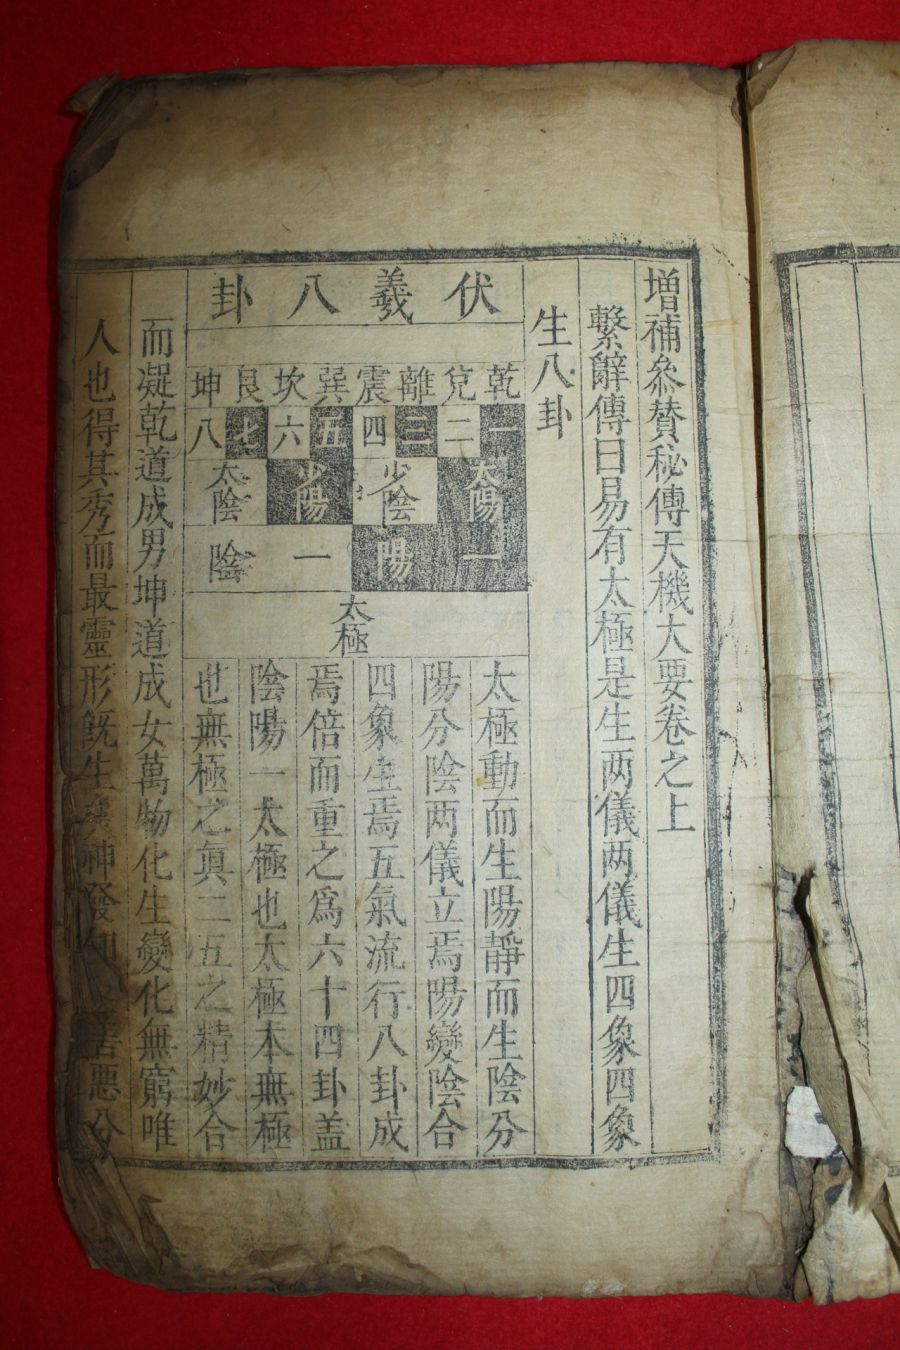 增補參贊秘傳天機大要卷之上
繫辭傳曰易有太極是生两儀两儀生四象四象
生八卦
伏羲八卦
乾兌離震巽坎艮坤
一二三四五六七八
太陽少陰少陽太陰
一陽一陰
太極
太極動而生陽靜而生陰分
陽分陰两儀立焉陽變陰合
四象生焉五氣流行八卦成
焉倍而重之爲六十四卦盖
陰陽一太極也太極本無極
也無極之眞二五之精妙合
而凝乾道成男坤道成女萬物化生變化無窮唯
人也得其秀而最靈形旣生矣神發知善惡分